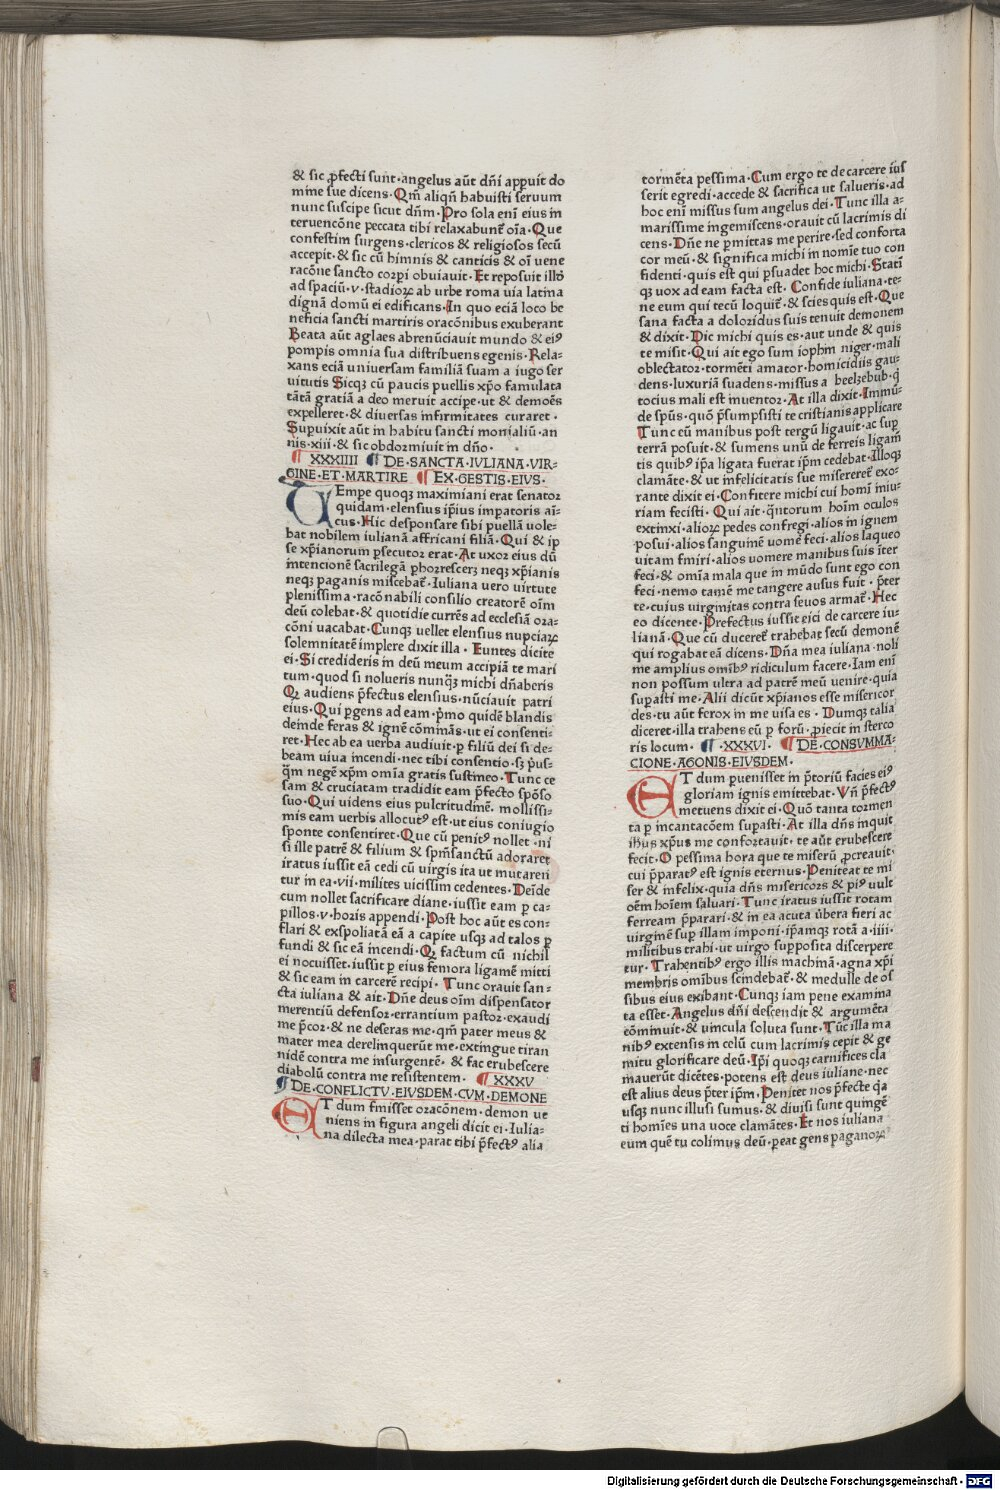 & sic ꝓfecti sunt·angelus aūt dn̄i appuit do
mine sue dicens·Qm̄ aliqn̄ habuisti seruum
nunc suscipe sicut dn̄m·Pro sola eni eius in
teruencōne peccata tibi relaxabunt᷑ oīa·Que
confestim surgens·clericos & religiosos secū
accepit·& sic cū himnis & canticis & oī uene
racōne sancto corpi obuiauit·Et reposuit illū
ad spaciū·v·stadioꝝ ab urbe roma uia latina
dignā domū ei edificans·In quo eciā loco be
neficia sancti martiris oracōnibus exuberant
Beata aūt aglaes abrenūciauit mundo & eiꝰ
pompis omnia sua distribuens egenis·Rela-
xans eciā uniuersam familiā suam a iugo ser
uitutis Sicqꝫ cū paucis puellis xp̄o famulata
tātā gratiā a deo meruit accipe·ut & demoēs
expelleret·& diuersas infirmitates curaret·
Supuixit aūt in habitu sancti monialiū·an
nis·xiii·& sic obdormiuit in dn̄o·
XXXIIII DE·SANCTA·IVLIANA·VIR-
GINE·ET·MARTIRE EX·GESTIS·EIVS·
TEmpe quoqꝫ maximiani erat senator
quidam·elensius ip̄ius impatoris ai-
cus·Hic desponsare sibi puellā uole-
bat nobilem iulianā affricani filiā·Qui & ip
se xp̄ianorum ꝑsecutor erat·At uxor eius dū
intencionē sacrilegā ꝑhorrescerꝫ neqꝫ xp̄ianis
neqꝫ paganis miscebat᷑·Iuliana uero uirtute
plenissima·racōnabili consilio creatorē oīm
deū colebat·& quotidie currēs ad ecclesiā ora-
cōni uacabat·Cunqꝫ uellet elensius nupciaꝝ
solemnitatē implere dixit illa·Euntes dicite
ei·Si credideris in deū meum accipiā te mari
tum·quod si nolueris nunqꝫ michi dn̄aberis
Qꝫ audiens p̄fectus elensius·nūciauit patri
eius·Qui ꝑgens ad eam·p̄mo quidē blandis
deinde feras & ignē cōmiās·ut ei consenti-
ret·Hec ab ea uerba audiuit·ꝑ filiū dei si de-
beam uiua incendi·nec tibi consentio·sꝫ p̄us-
q̄m negē xp̄m omīa gratis sustineo·Tunc ce
sam & cruciatam tradidit eam p̄fecto spōso
suo·Qui uidens eius pulcritudinē·mollissi-
mis eam uerbis allocutꝰ est·ut eius coniugio
sponte consentiret·Que cū penitꝰ nollet·ni
si ille patrē & filium & spm̄sanctū adoraret
iratus iussit eā cedi cū uirgis ita ut mutaren
tur in ea·vii·milites uicissim cedentes·Deīde
cum nollet sacrificare diane·iussit eam ꝑ ca-
pillos·v·horis appendi·Post hoc aūt es con-
flari & exspoliatā eā a capite usqꝫ ad talos ꝑ
fundi & sic eā incendi·Qꝫ factum cū nichil
ei nocuisset·iussit ꝑ eius femora ligamē mitti
& sic eam in carcerē recipi·Tunc orauit san-
cta iuliana & ait·Dn̄e deus oīm dispensator
merentiū defensor·errantium pastor·exaudi
me p̄cor·& ne deseras me·qm̄ pater meus &
mater mea derelinquerūt me·extingue tiran
nidē contra me insurgentē·& fac erubescere
diabolū contra me resistentem· XXXV
DE·CONFLICTV·EIVSDEM·CVM·DEMONE
ET dum fīnisset oracōnem·demon ue
niens in figura angeli dicit ei·Iulia-
na dilecta mea·parat tibi p̄fectꝰ alia
tormēta pessima·Cum ergo te de carcere ius
serit egredi·accede & sacrifica ut salueris·ad
hoc eni missus sum angelus dei·Tunc illa a-
marissime ingemiscens·orauit cū lacrimis di
cens·Dn̄e ne ꝑmittas me perire·sed conforta
cor meū·& significa michi in nomīe tuo con
fidenti·quis est qui ꝑsuadet hoc michi·Statī
qꝫ uox ad eam facta est·Confide iuliana·te-
ne eum qui tecū loquit᷑·& scies quis est·Que
sana facta a doloribus suis tenuit demonem
& dixit·Dic michi quis es·aut unde & quis
te misit·Qui ait ego sum iophin niger·mali
oblectator·tormēti amator·homicidiis gau-
dens·luxuriā suadens·missus a beelzebub·q̄
tocius mali est inuentor·At illa dixit·Immū-
de sp̄us·quō p̄sumpsisti te cristianis applicare
Tunc eū manibus post tergū ligauit·ac sup
terrā posuit·& sumens unū de ferreis ligam̄
tis quibꝰ ip̄a ligata fuerat ip̄m cedebat·Illoqꝫ
clamāte·& ut infelicitatis sue misereret᷑ exo-
rante dixit ei·Confitere michi cui homī iniu-
riam fecisti·Qui ait·q̄ntorum hoīm oculos
extinxi·alioꝝ pedes confregi·alios in ignem
posui·alios sanguinē uomē feci·alios laqueo
uitam finiri·alios uomere manibus suis īter
feci·& omīa mala que in mūdo sunt ego con
feci·nemo tamē me tangere ausus fuit·p̄ter
te·cuius uirginitas contra seuos armat᷑·Hec
eo dicente·Prefectus iussit eici de carcere iu-
lianā·Que cū duceret᷑ trahebat secū demonē
qui rogabat eā dicens·Dn̄a mea iuliana noli
me amplius omībꝰ ridiculum facere·Iam eni
non possum ultra ad patrē meū uenire·quia
suꝑasti me·Alii dicūt xp̄ianos esse misericor
des·tu aūt ferox in me uisa es·Dumqꝫ talia
diceret·illa trahens eū ꝑ forū·ꝓiecit in sterco
ris locum· ·XXXVI· DE·CONSVMMA-
CIONE·AGONIS·EIVSDEM·
ET dum ꝑuenisset in p̄toriū facies eiꝰ
gloriam ignis emittebat·Vn̄ p̄fectꝰ
metuens dixit ei·Quō tanta tormen
ta ꝑ incantacōem suꝑasti·At illa dn̄s inquit
ihūs xp̄us me confortauit·te aūt erubescere
fecit·O pessima hora que te miserū ꝓcreauit·
cui p̄paratꝰ est ignis eternus·Peniteat te mi
ser & infelix·quia dn̄s misericors & piꝰ uult
oēm hoīem saluari·Tunc iratus iussit rotam
ferream p̄parari·& in ea acuta ūbera fieri ac
uirginē sup illam imponi·ip̄amqꝫ rotā a·iiii·
militibus trahi·ut uirgo supposita discerpere
tur·Trahentibꝰ ergo illis machinā·agna xp̄i
membris omībus scindebat᷑·& medulle de os
sibus eius exibant·Cunqꝫ iam pene examina
ta esset·Angelus dn̄i descendit & argumēta
cōminuit·& uincula soluta sunt·Tūc illa ma
nibꝰ extensis in celū cum lacrimis cepit & ge
mitu glorificare deū·Ip̄i quoqꝫ carnifices cla
mauerūt dicētes·potens est deus iuliane·nec
est alius deus p̄ter ip̄m·Penitet nos p̄fecte q̄a
usqꝫ nunc illusi sumus·& diuisi sunt quingē
ti homīes una uoce clamātes·Et nos iuliana
eum quē tu colimus deū·pereat gens paganoꝝ
Digitalisierung gefördert durch die Deutsche Forschungsgemeinschaft - DFG